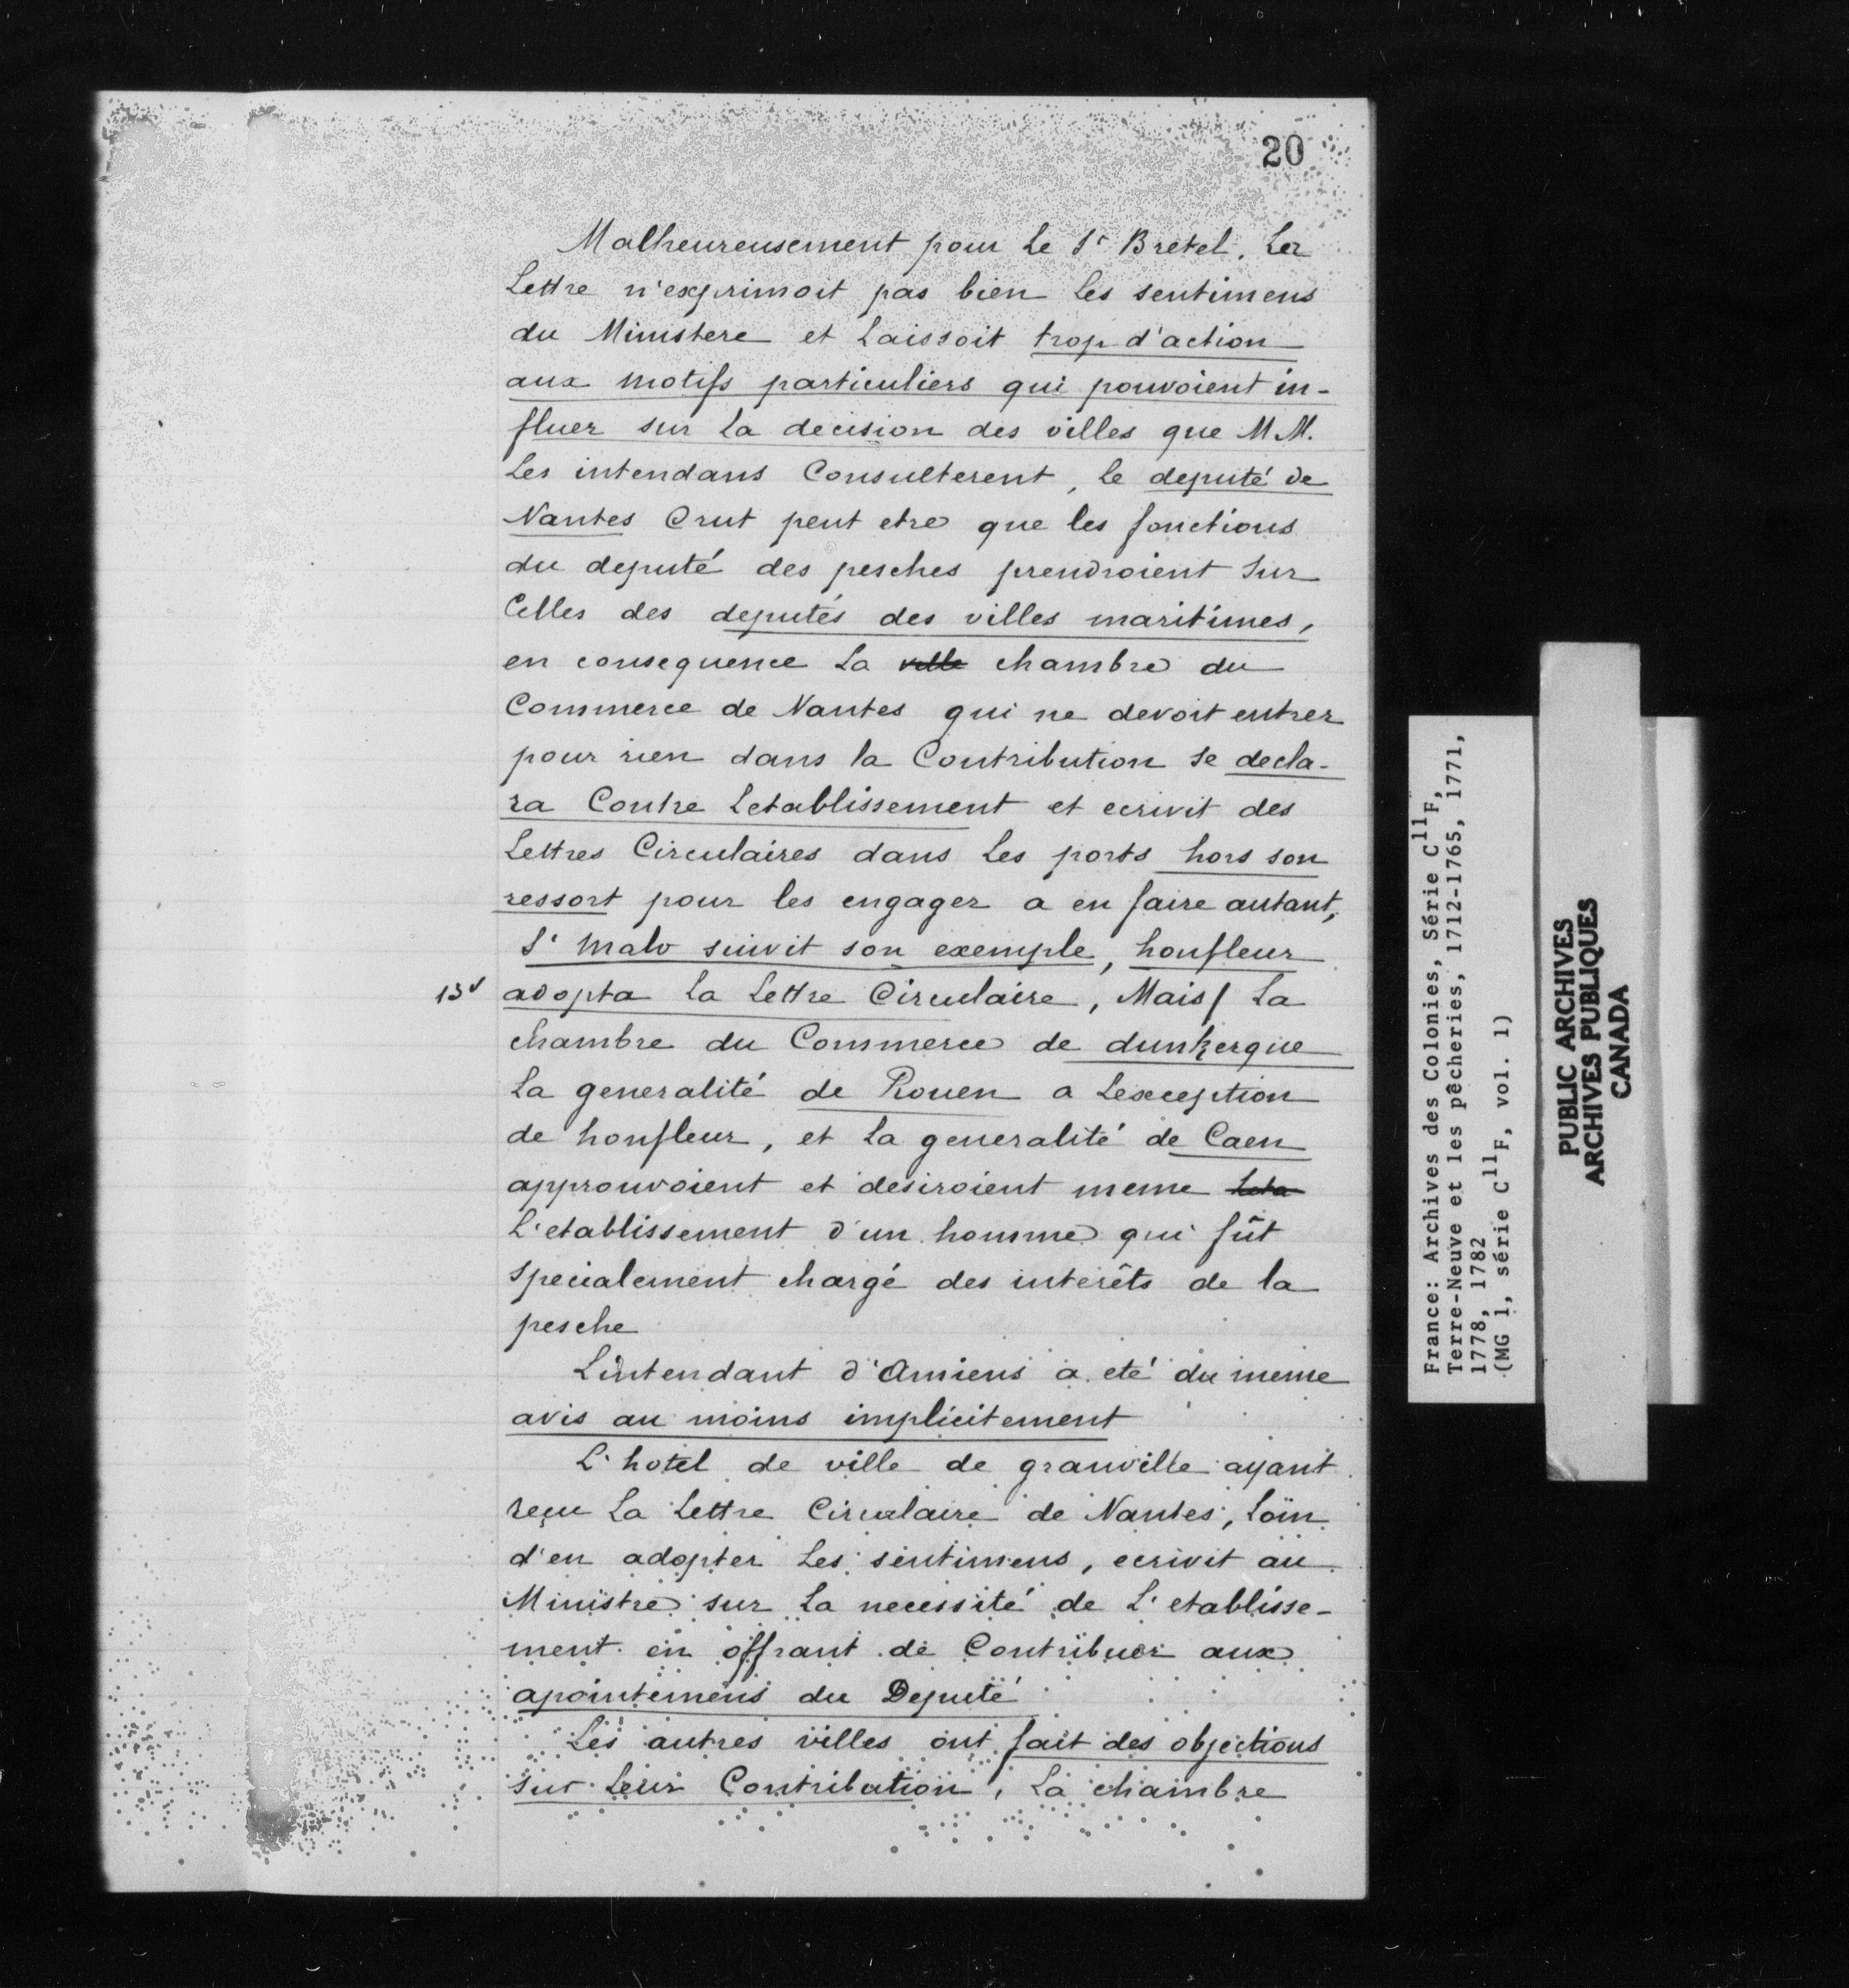 20
Malheureusement pour Le Sr Bretel. La
Lettre n'exprimoit pas bien Les sentimens
du Ministere et Laissoit trop d'action
aux motifs particuliers qui pouvoient in-
fluer sur La decision des villes que MM.
Les intendans Consulterent, Le deputé de
Nantes Crut peut etre que les fonctions
du deputé des pesches prendroient Sur
Celles des deputés des villes maritimes,
en consequence La ville chambre du
Commerce de Nantes qui ne devoit entrer
pour rien dans la Contribution se decla-
ra Contre Letablissement et ecrivit des
Lettres Circulaires dans Les ports hors son
ressort pour les engager a en faire autant,
St Malo suivit son exemple, honfleur
13v adopta La Lettre Circulaire, Mais/ La
chambre du Commerce de dunkerque
La generalité de Rouen a Lexception
de honfleur, et La generalité de Caen
approuvoient et desiroient meme Leta
L'etablissement d'un homme qui fût
specialement chargé des interêts de la
pesche
Lintendant d'Amiens a eté du meme
avis au moins implicitement
L'hotel de ville de granville ayant
reçu La Lettre Circulaire de Nantes, Loin
d'en adopter Les sentimens, ecrivit au
Ministre sur La necessité de L'etablisse-
ment en offrant de Contribuer aux
apointemens du Deputé
Les autres villes ont fait des objections
sur Leur Contribution, La chambre
France: Archives des Colonies, Série C11F,
Terre-Neuve et les pêcheries, 1712-1765, 1771,
1778, 1782
(MG 1, série C11F, vol. 1)
PUBLIC ARCHIVES
ARCHIVES PUBLIQUES
CANADA